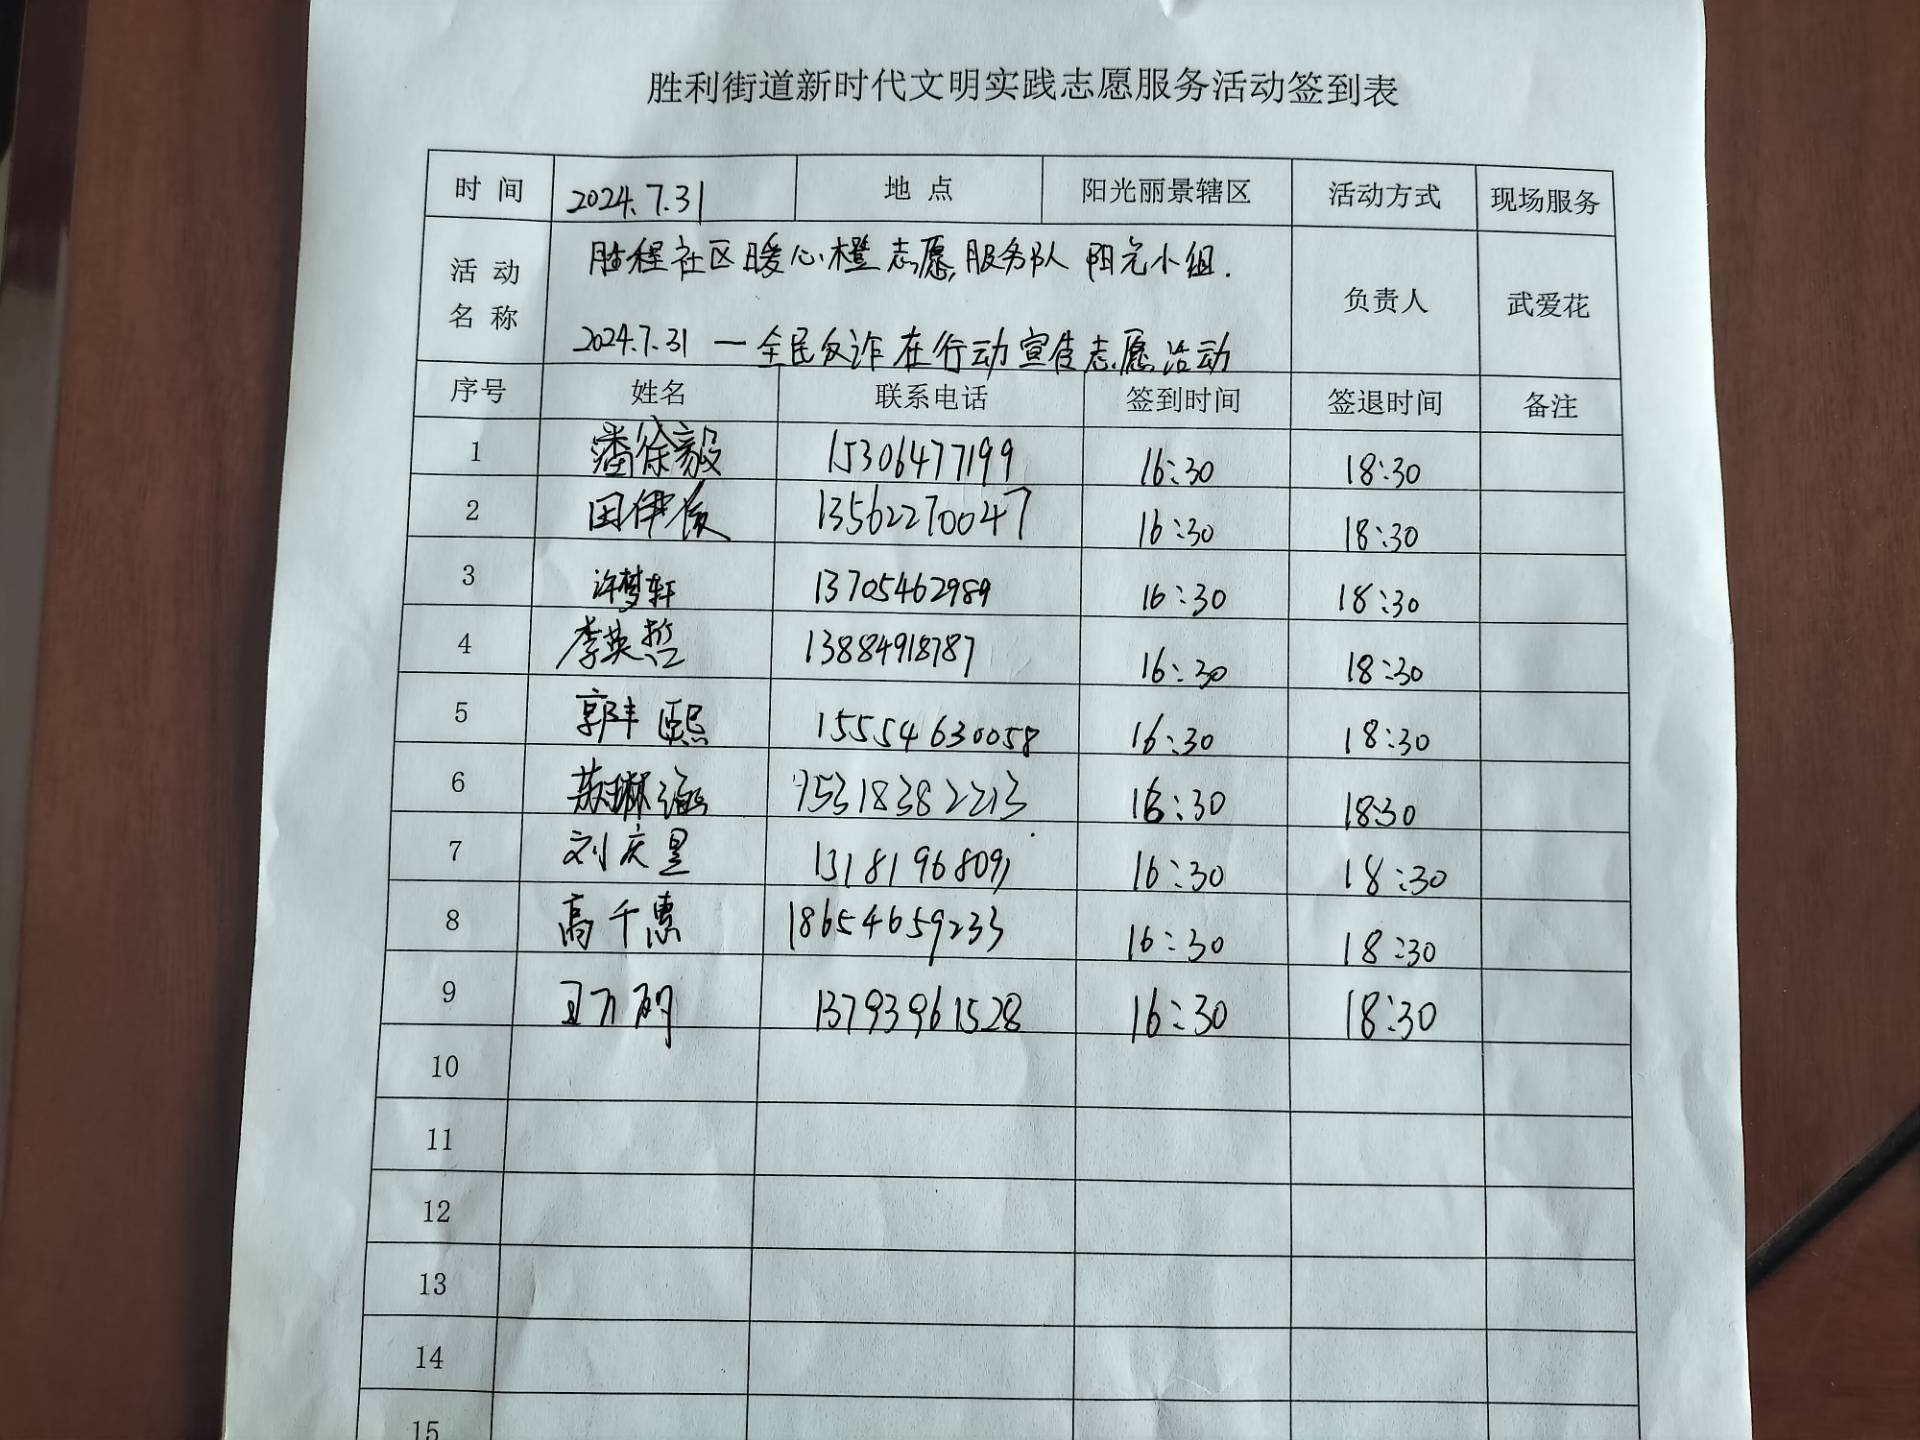 胜利街道新时代文明实践志愿服务活动签到表
时 间 2024.7.31 地 点 阳光丽景辖区 活动方式 现场服务
活 动 名 称 胜程社区暖心橙志愿服务队 阳光小组.
2024.7.31 一全民反诈在行动宣传志愿活动 负责人 武爱花
序号 姓名 联系电话 签到时间 签退时间 备注
1 潘徐毅 15306477199 16:30 18:30
2 田伊 13562270047 16:30 18:30
3 许梦轩 13705462989 16:30 18:30
4 李英哲 13884918787 16:30 18:30
5 郭丰熙 15554630058 16:30 18:30
6 琳涵 15318382213 16:30 18:30
7 刘庆昱 13181968091 16:30 18:30
8 高千惠 18654659233 16:30 18:30
9 13793961528 16:30 18:30
10
11
12
13
14
15